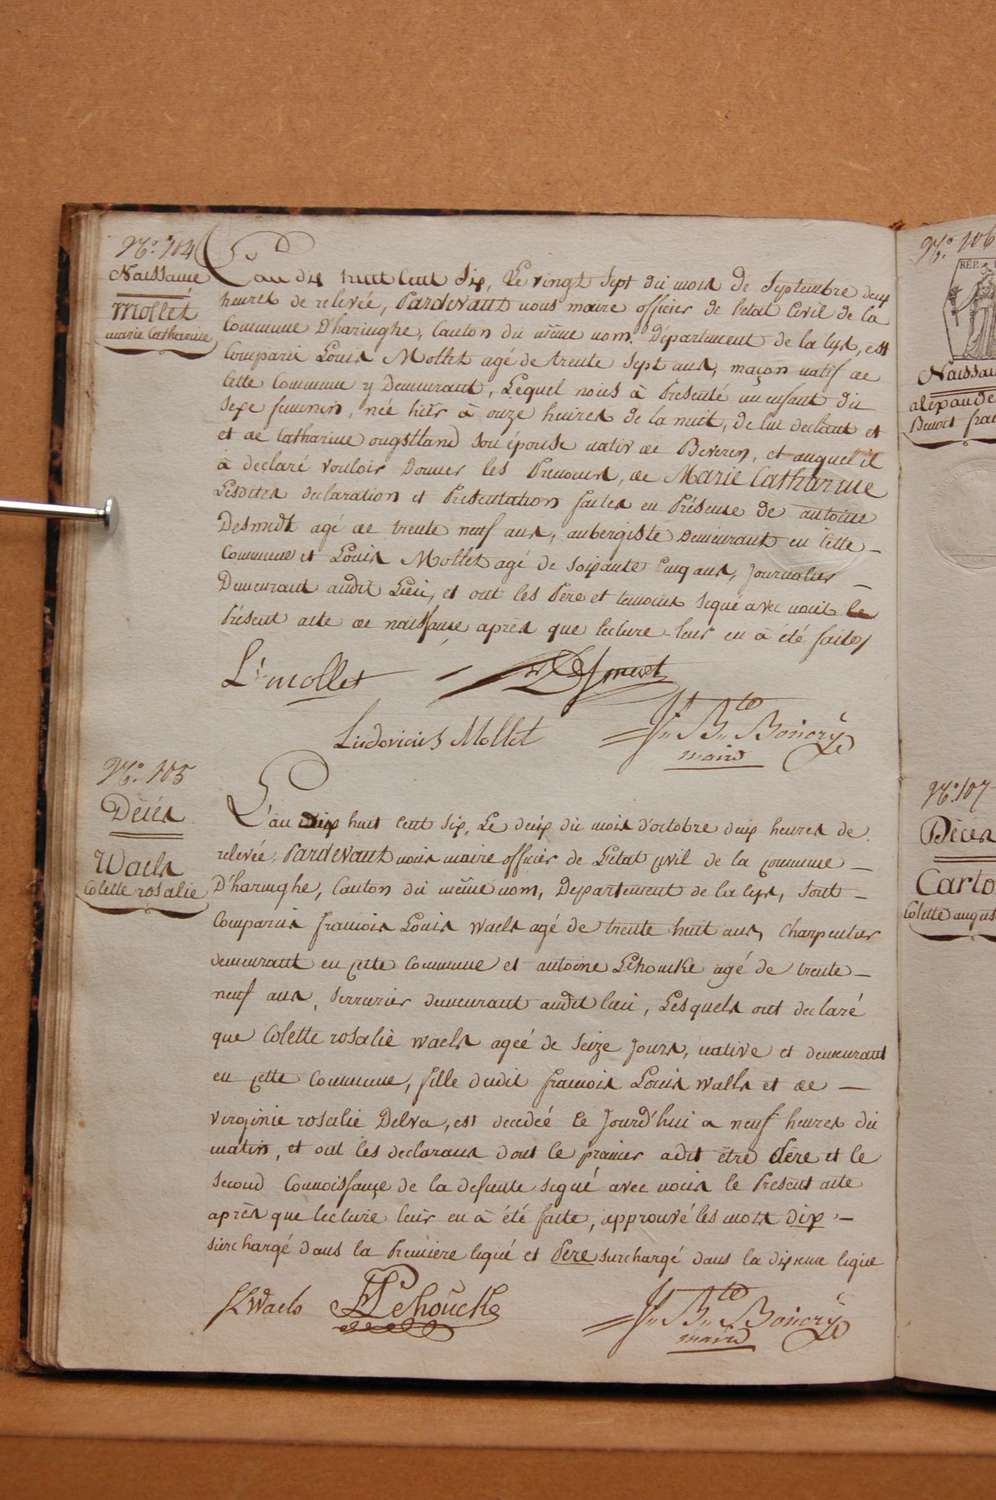 N.o 104
Naissance
Mollet
marie Catharine
L'an dix huit cent six, Le vingt sept du mois de septembre deux
heures de relevée, Pardevant nous maire officier de l'etat Civil de la
Commune D'haringhe, Canton du même nom, Département de la lys, est
Comparu Louis Mollet agé de trente sept ans, maçon natif de
cette Commune y Demeurant, Lequel nous à Presenté un enfant du
sexe feminin, née hièr à onze heures de la nuit, de lui declarant et
et de Catharine son épouse nativ de Beveren, et auquel il
à declaré vouloir Donner les Prenoms, de Marie Catharine
Lesdites declaration et Presentation faites en Présense de antoine
Desmidt agé de trente neuf ans, aubergiste Demeurant en cette –
Commune et Louis Mollet agé de soixante Cinq ans, Journalier –
Demeurant audit Lieu, et ont les Père et temoins signé avec nous le
Présent acte de naissance après que lecture leur en à été faite,
L.s mollet
Desmidt
Ludovicus Mollet
J.n B.te Boncry
maire
N.o 105
Décès
Waels
Colette rosalie
L'an Dix huit cent six, Le deux du mois d'octobre deux heures de
relevée, Pardevant nous maire officier de L'etat civil de la commune –
D'haringhe, Canton du même nom, Departement de la lys, sont –
Comparus françois Louis Waels agé de trente huit ans, charpentier
demeurant en cette commune et antoine Lehoucke agé de trente –
neuf ans, serrurier demeurant audit lieu, Lesquels ont declaré
que Colette rosalie waels ageé de seize Jours, native et demeurant
en cette Commune, fille dudit françois Louis walls et de –
virginie rosalie Delva, est decedeé ce Jourd'hui a neuf heures du
matin, et ont les declarans dont le premier a dit être Père et le
second Connoissançe de la defunte signé avec nous le Present acte
après que lecture leur en à été faite, approuvé les mots dix –
surchargé dans la Premiere ligne et Père surchargé dans la dixieme ligne
f L Waels
Lehoucke
J.n B.te Boncry
maire
N.o 106
REP.
Naissan
alexandre
Benoit fran
N.o 107
Décès
Carto
Colette augus